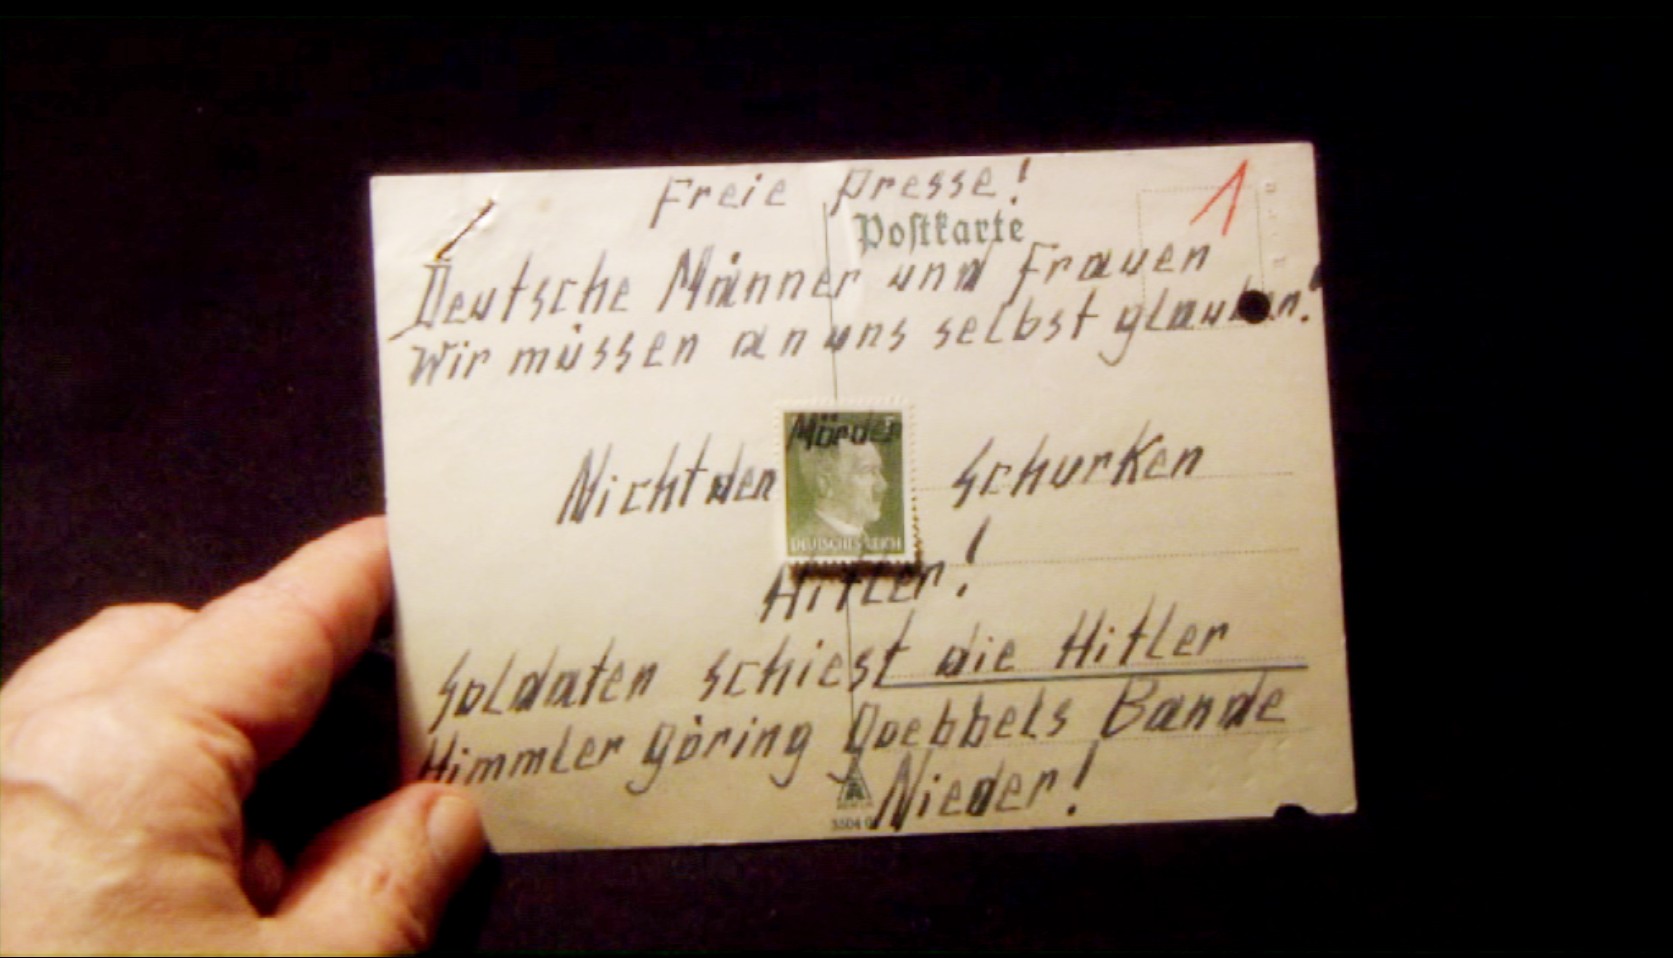 Freie Presse!
Postkarte
1
Deutsche Männer und Frauen
Wir müssen an uns selbst glauben!
Mörder
Nicht den Schurken
DEUTSCHES REICH
Hitler!
Soldaten schiest die Hitler
Himmler Göring Goebbels Bande
Nieder!